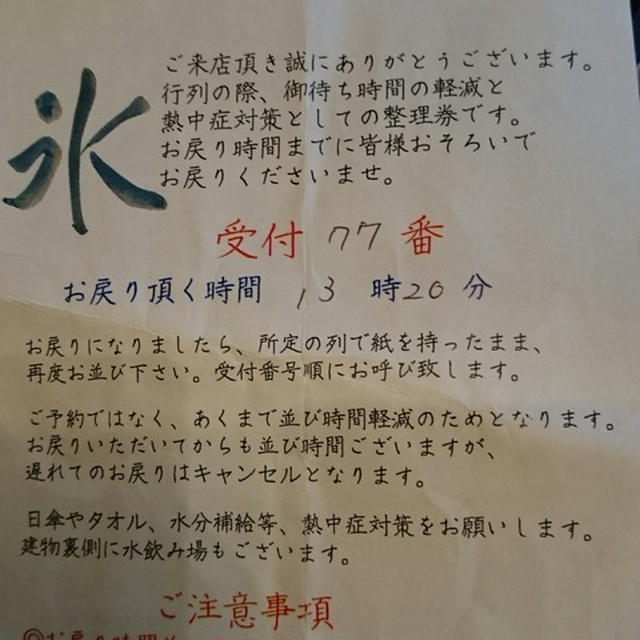 氷
ご来店頂き誠にありがとうございます。
行列の際、御待ち時間の軽減と
熱中症対策としての整理券です。
お戻り時間までに皆様おそろいで
お戻りくださいませ。
受付 77 番
お戻り頂く時間 13 時20 分
お戻りになりましたら、所定の列で紙を持ったまま、
再度お並び下さい。受付番号順にお呼び致します。
ご予約ではなく、あくまで並び時間軽減のためとなります。
お戻りいただいてからも並び時間ございますが、
遅れてのお戻りはキャンセルとなります。
日傘やタオル、水分補給等、熱中症対策をお願いします。
建物裏側に水飲み場もございます。
ご注意事項
◎お戻り時間